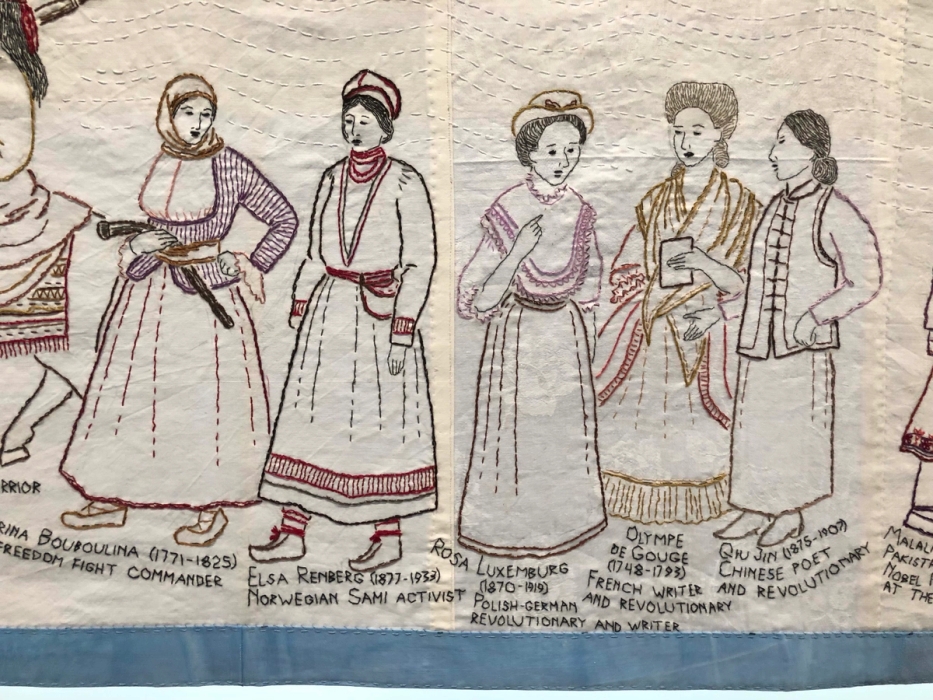 RRIOR
RINA BOUBOULINA (1771-1825)
FREEDOM FIGHT COMMANDER
ELSA RENBERG (1877-1933)
NORWEGIAN SAMI ACTIVIST
ROSA LUXEMBURG
(1870-1919)
POLISH-GERMAN
REVOLUTIONARY AND WRITER
OLYMPE
DE GOUGE
(1748-1793)
FRENCH WRITER
AND REVOLUTIONARY
QIU JIN (1875-1907)
CHINESE POET
AND REVOLUTIONARY
MALAL
PAKIST
NOBEL
AT THE